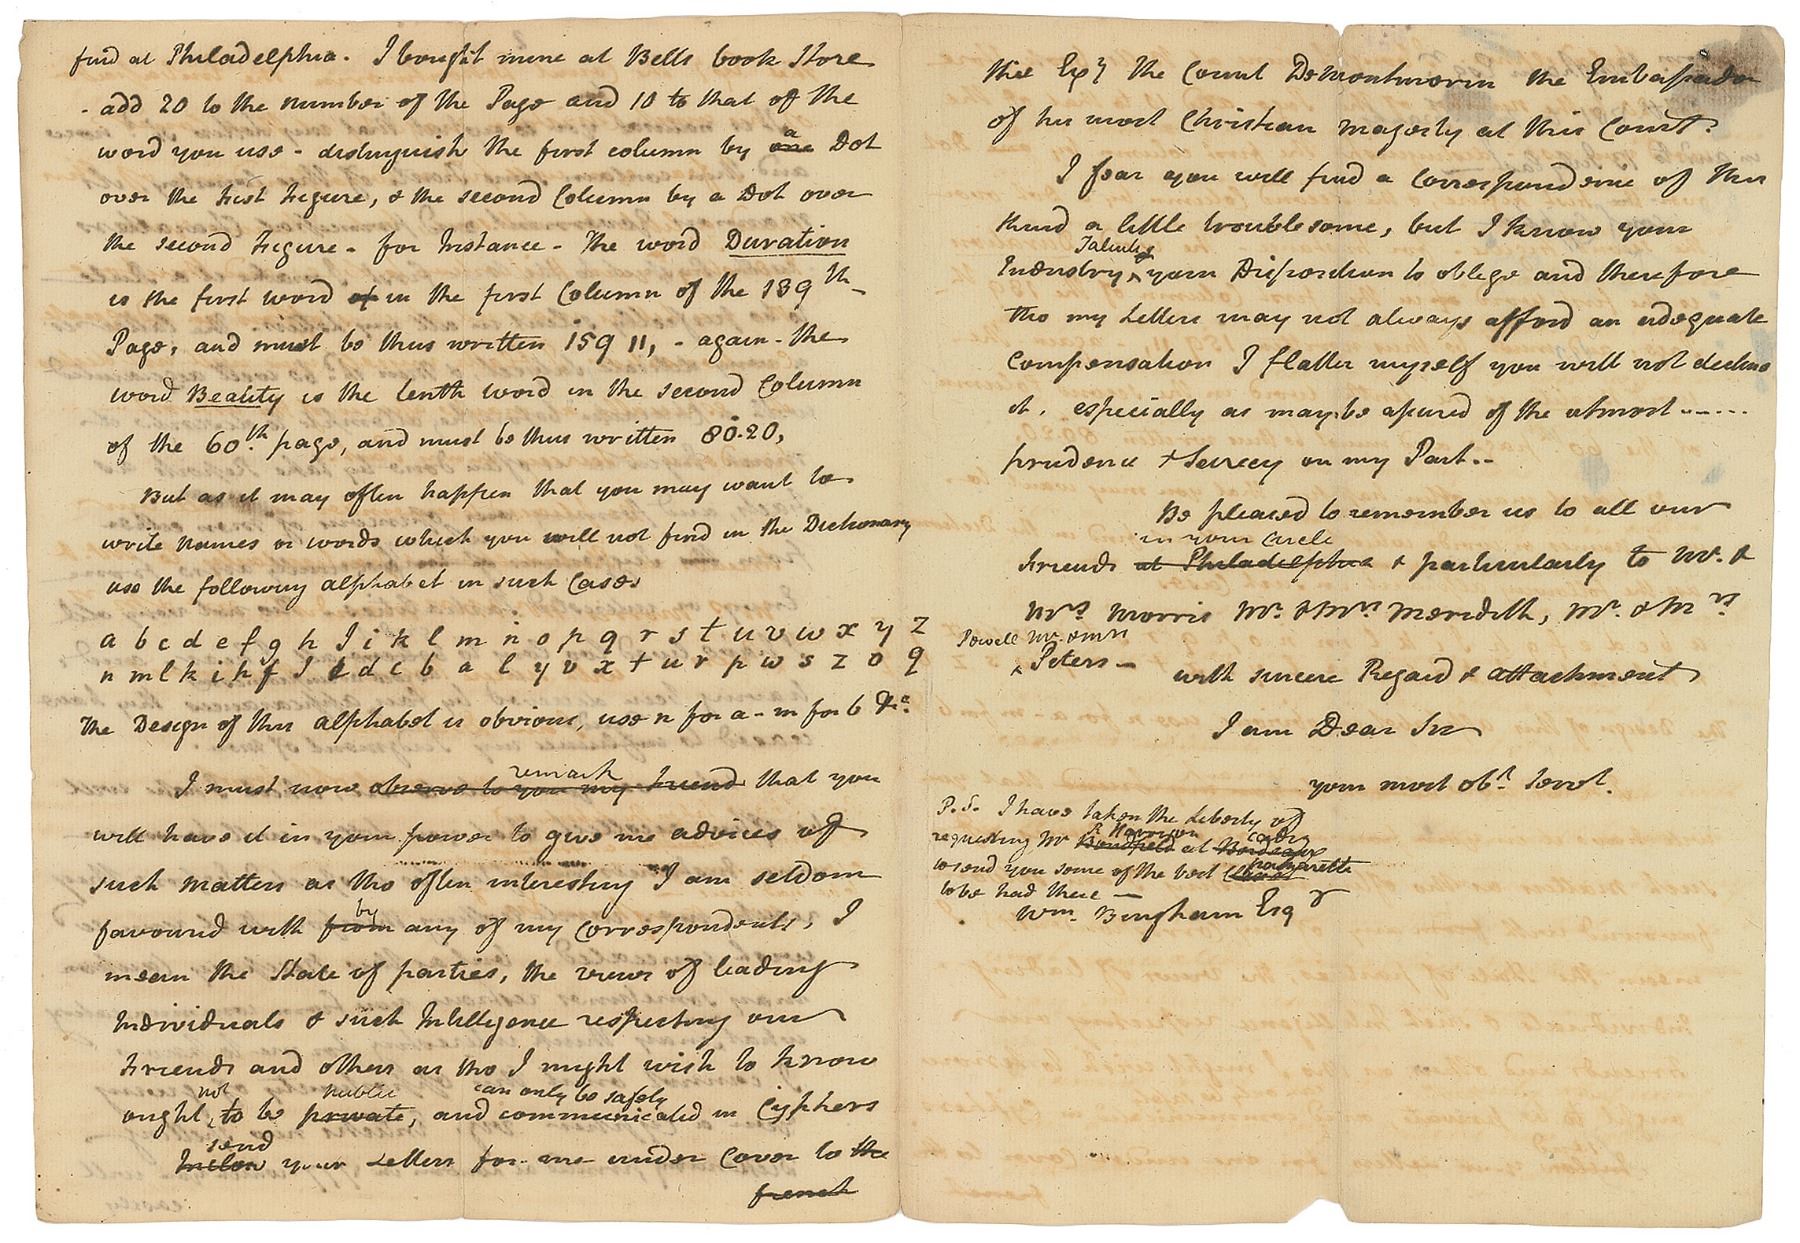 find at Philadelphia. I bought mine at Bells book Store
- add 20 to the number of the Page and 10 to that of the
word you use - distinguish the first column by one a Dot
over the first Figure, & the second Column by a Dot over
the second Figure - for Instance - The word Duration
is the first word of in the first Column of the 139th
Page, and must be thus written 159 11, - again - the
word Beality is the tenth word in the second Column
of the 60th page, and must be thus written 80.20,
But as it may often happen that you may want to
write Names or words which you will not find in the Dictionary
use the following alphabet in such Cases
a b c d e f g h I i k l m n o p q r s t u v w x y z
n m l k i h f I e d c b a l y v x t u r p w s z o q
The Design of this alphabet is obvious, use n for a - m for b &c.
remark
I must now observe to you my friend that you
will have it in your power to give me advices of
such matters as tho often interesting I am seldom
by
favoured with from any of my Correspondents, I
mean the State of parties, the views of leading
Individuals & such Intelligence respecting our
Friends and others as tho I might wish to know
not public can only be safely
ought to be private, and communicated in Cyphers
send
Inclose your Letters for me under Cover to the
french
thie Exy the Count DeMontmorin the Embassador
of his most Christian Majesty at this Court.
I fear you will find a Correspondence of this
kind a little troublesome, but I know your
Talents &
Industry, your Disposition to oblige and therefore
tho my Letters may not always afford an adequate
Compensation I flatter myself you will not decline
it, especially as may be assured of the utmost ------
prudence & Secrecy on my Part --
Be pleased to remember us to all our
in your Circle
Friends at Philadelphia & particularly to Mr. &
Mrs Morris Mr. & Mrs Meredith, Mr. & Mrs
Powell Mr. & Mrs
Peters -
with sincere Regard & attachment
I am Dear Sir
your most obt. Servt.
P.S. I have taken the Liberty of
R Harrison Cadiz
requesting Mr Bondfield at Bordeaux
to send you some of the best Claret
to be had there -
Wm. Bingham Esqr